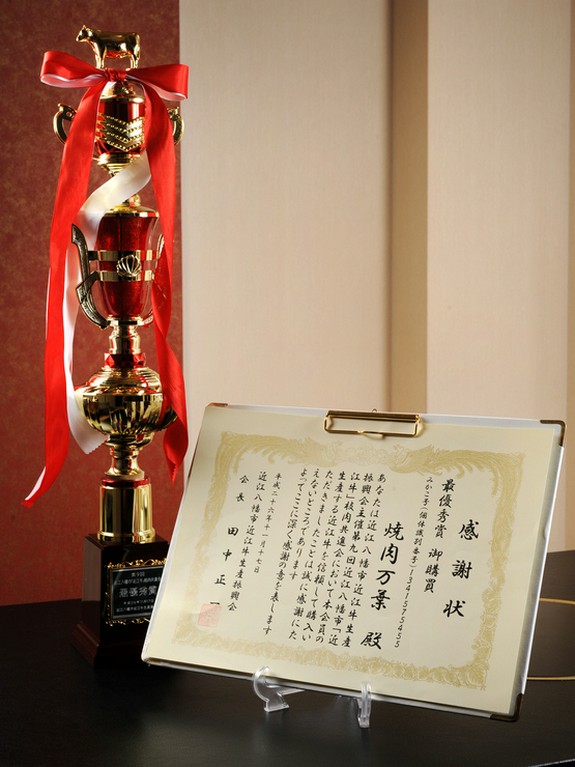 感謝状
最優秀賞 御購買
みかこ号(個体識別番号)1341575455
焼肉万葉 殿
あなたは近江八幡市近江牛生産
振興会主催第九回近江八幡市「近
江牛」枝肉共進会において本会員の
生産する近江牛を信頼して購入い
ただきましたことは誠に感謝にた
えないところであります
よってここに深く感謝の意を表します
平成二十六年十一月十七日
近江八幡市近江牛生産振興会
会長 田中正一
第9回
最優秀賞